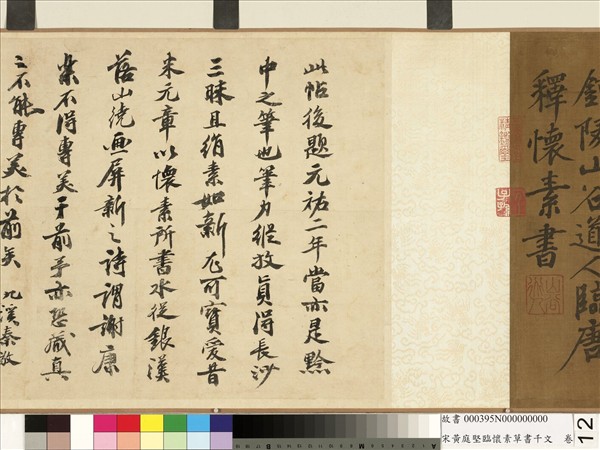 鍾陵山谷道人臨唐
釋懷素書
此帖後題元祐二年當亦是黔
中之筆也筆力縱放真得長沙
三昧且絹素如新尤可寶愛昔
米元章以懷素所書水從銀漢
落山繞画屏新之詩謂謝康
樂不得專美于前予亦恐藏真
之不能專美於前矣 北溪秦敏
故書 000395N000000000
宋黃庭堅臨懷素草書千文 卷
12